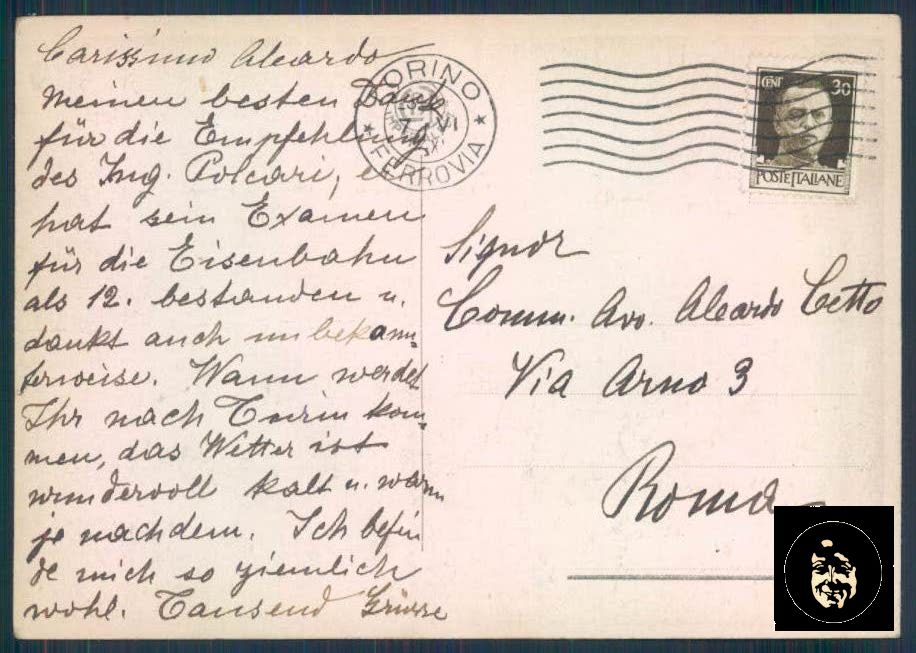 Carissimo Aleardo
Meinen besten Dank
für die Empfehlung
des Ing. Porcari, er
hat sein Examen
für die Eisenbahn
als 12. bestanden u.
dankt auch unbekann-
terweise. Wann werdet
Ihr nach Turin kom-
men, das Wetter ist
wundervoll kalt u. warm
je nachdem. Ich befin
de mich so ziemlich
wohl. Tausend Grüsse
TORINO
FERROVIA
CENT 30
POSTE ITALIANE
Signor
Comm. Avv. Aleardo Cetto
Via Arno 3
Roma